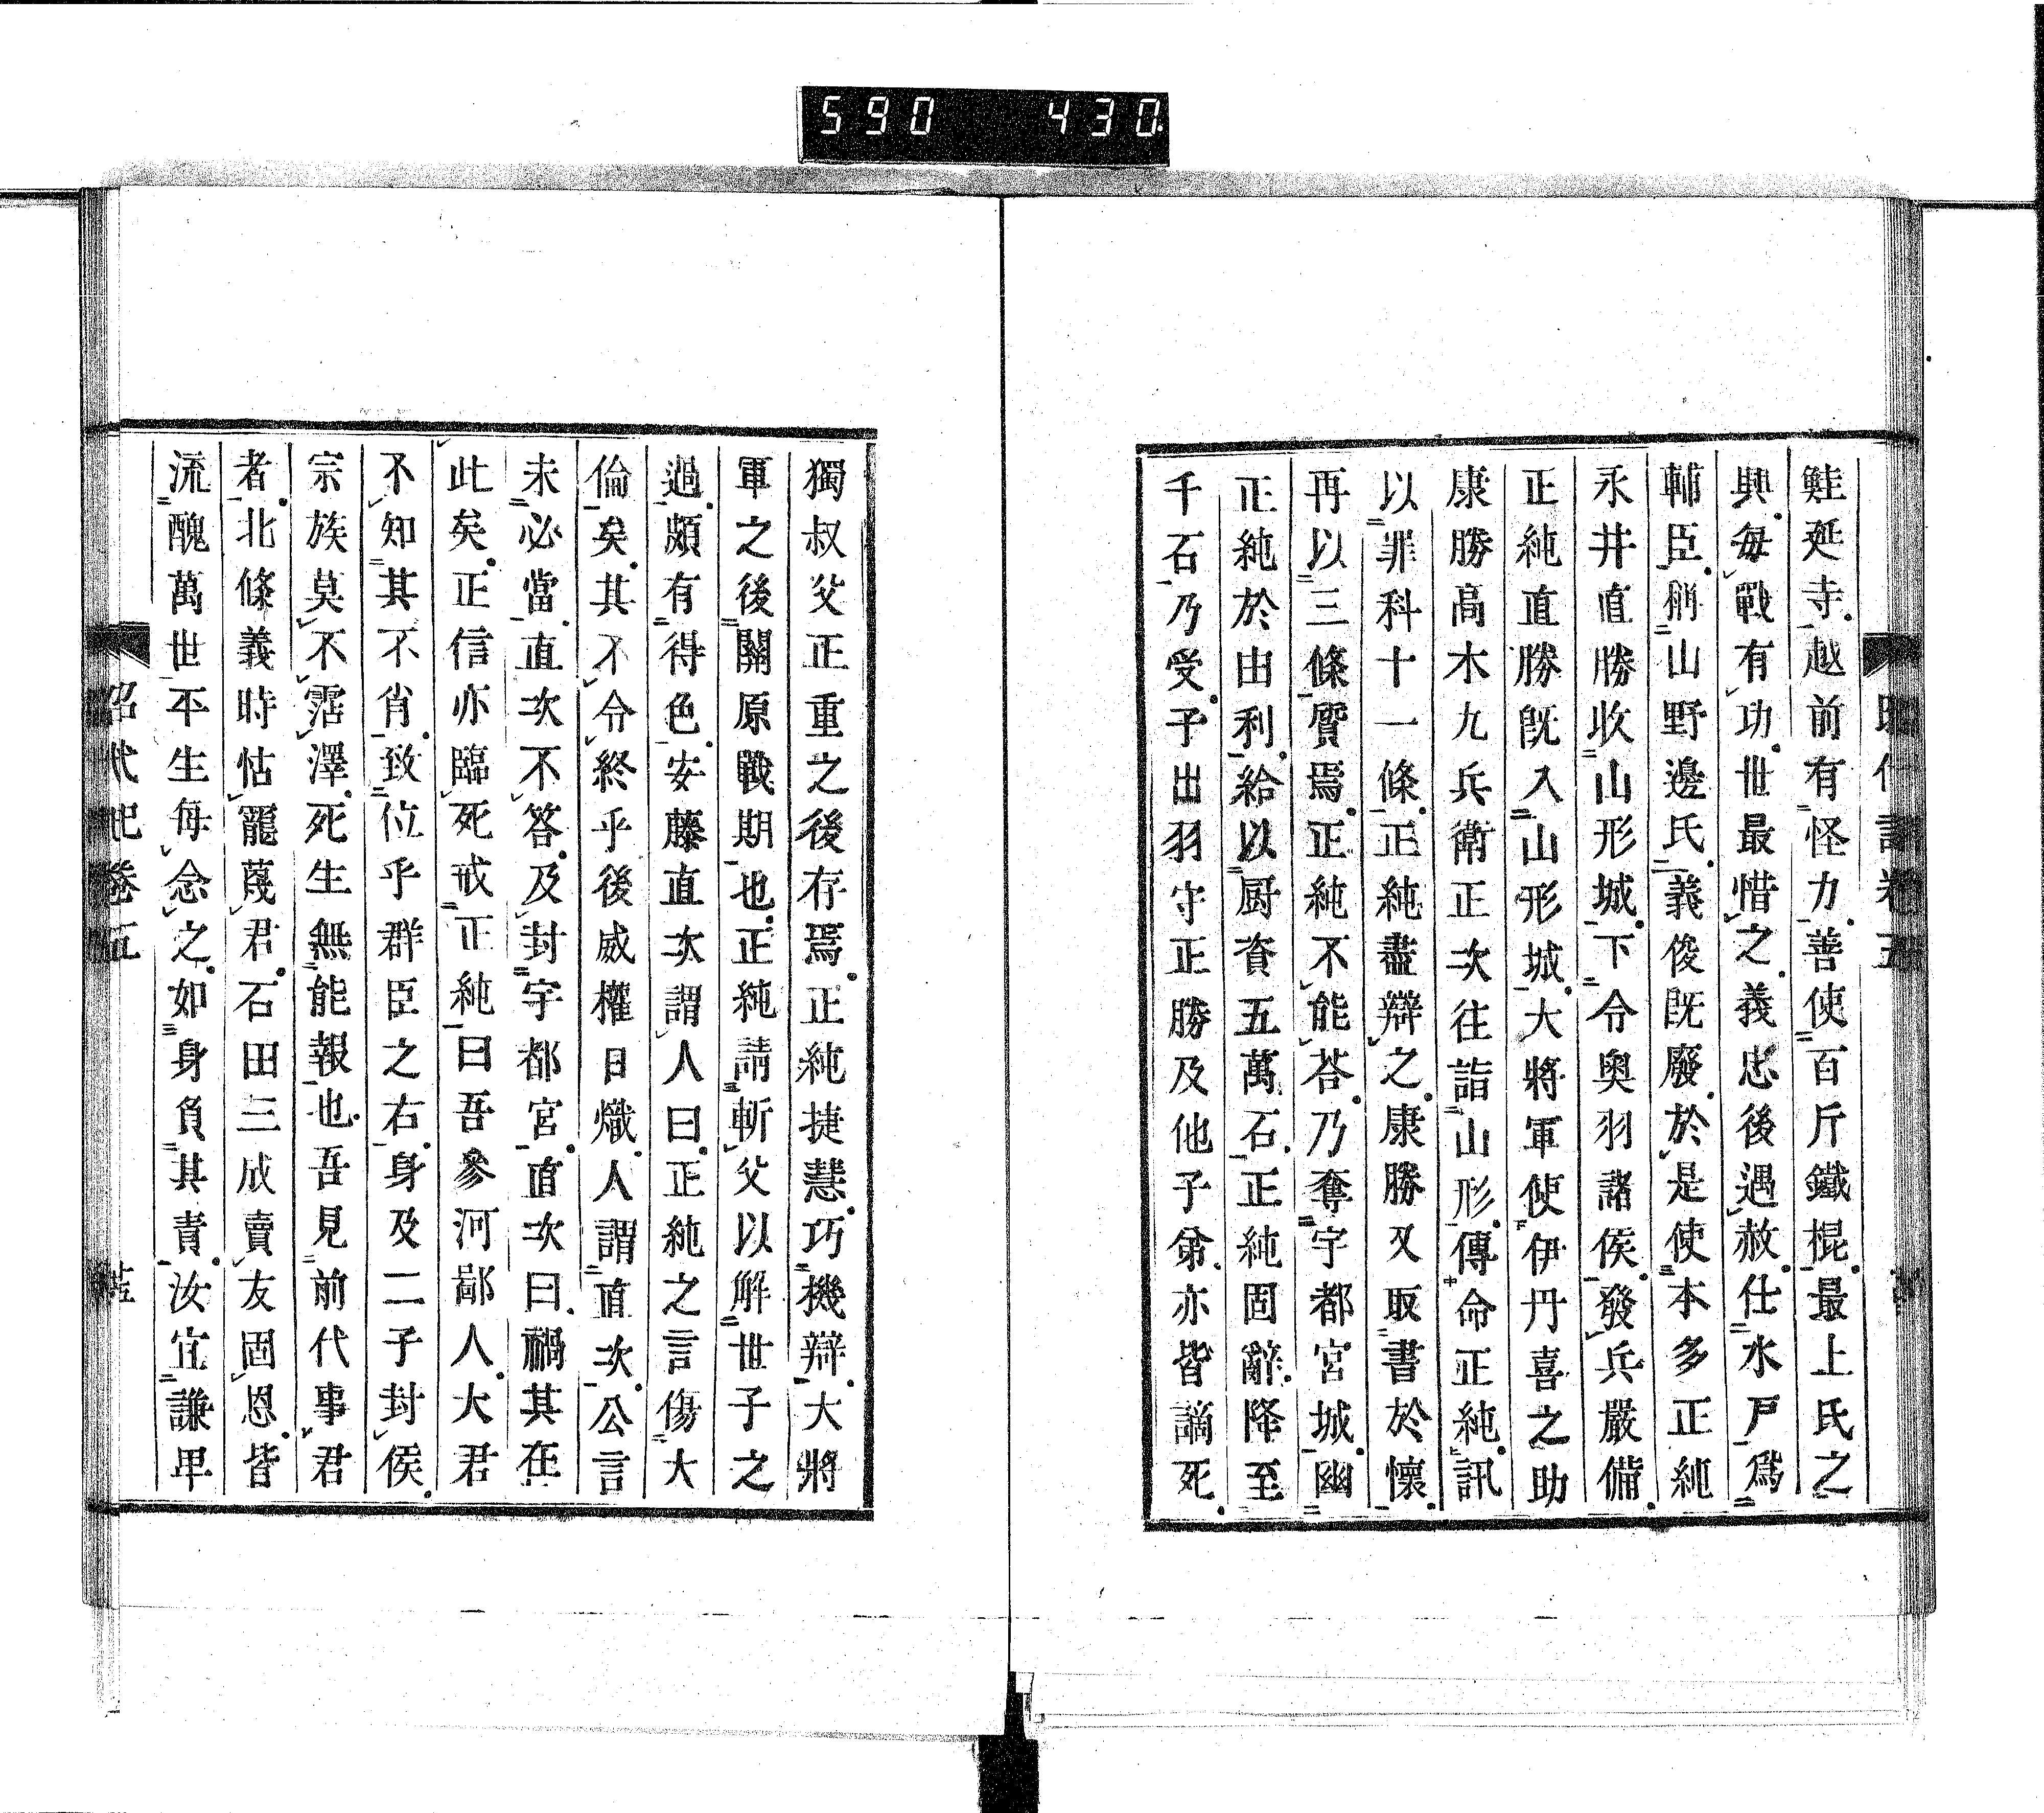 590 430
昭代記卷五
鮭延寺越前有怪力善使百斤鐵棍最上氏之
興每戰有功世最惜之義忠後遇赦仕水戶爲
輔臣稱山野邊氏義俊既廢於是使本多正純
永井直勝收山形城下令奧羽諸侯發兵嚴備
正純直勝既入山形城大將軍使伊丹喜之助
康勝高木九兵衛正次往詣山形傳命正純訊
以罪科十一條正純盡辯之康勝又取書於懷
再以三條質焉正純不能荅乃奪宇都宮城幽
正純於由利給以厨資五萬石正純固辭降至
千石乃受子出羽守正勝及他子弟亦皆謫死
獨叔父正重之後存焉正純捷慧巧機辯大將
軍之後關原戰期也正純請斬父以解世子之
過頗有得色安藤直次謂人曰正純之言傷大
倫矣其不令終乎後威權日熾人謂直次公言
未必當直次不答及封宇都宮直次曰禍其在
此矣正信亦臨死戒正純曰吾參河鄙人大君
不知其不肖致位乎群臣之右身及二子封侯
宗族莫不霑澤死生無能報也吾見前代事君
者北條義時怙寵蔑君石田三成賣友固恩皆
流醜萬世平生每念之如身負其責汝宜謙卑
昭代記卷五